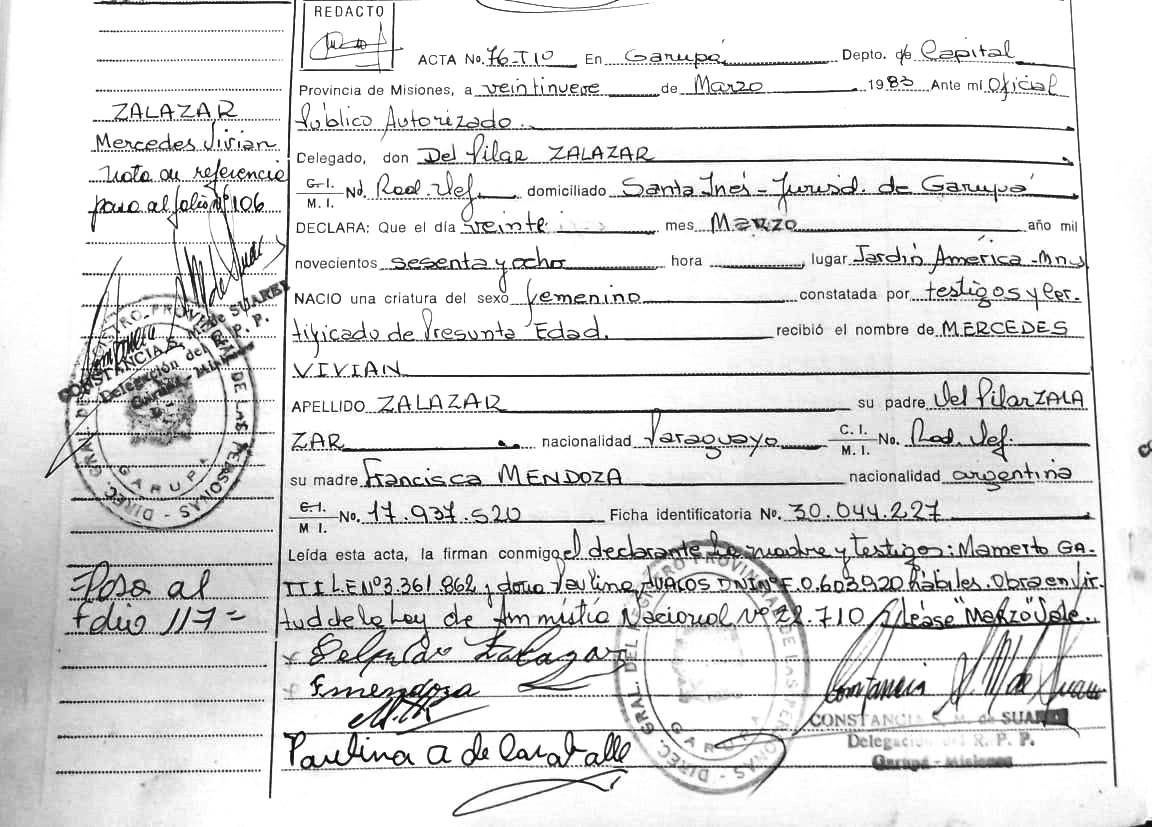 REDACTO
ACTA No. 76-TIO En Garupá Depto. de Capital
Provincia de Misiones, a veintinueve de Marzo 1983 Ante mi Oficial
Público Autorizado
Delegado, don Del Pilar ZALAZAR
C.I. M.I. No. Red. Def. domiciliado Santa Inés - Jurisd. de Garupá
DECLARA: Que el día veinte mes Marzo año mil
novecientos sesenta y ocho hora lugar Jardín América - Mnes
NACIO una criatura del sexo femenino constatada por testigos y Cer-
tificado de Presunta Edad. recibió el nombre de MERCEDES
VIVIAN
APELLIDO ZALAZAR su padre Del Pilar ZALA
ZAR nacionalidad Paraguayo C. I. M. I. No. Red. Def.
su madre Francisca MENDOZA nacionalidad argentina
C.I. M. I. No. 17.937.520 Ficha identificatoria No. 30.044.227
Leída esta acta, la firman conmigo el declarante la madre y testigos: Mamerto GA-
TTI L.E Nº 3.361.862 y doña Paulina AVALOS DNI Nº F.0.603.920 hábiles. Obra en vir
tud de la Ley de Amnistía Nacional Nº 22.710 Léase "Marzo" Vale.
x Del Pilar Zalazar
x F mendoza
Paulina A de Caraballo
Constancia S. M de Suarez
CONSTANCIA S. M. de SUAREZ
Delegación del R. P. P.
Garupá - Misiones
DIREC. GRAL. DEL REGISTRO PROVINCIAL DE LAS PERSONAS
GARUPA
ZALAZAR
Mercedes Vivian
Nota de referencia
pasa al folio Nº 106
CONSTANCIA S. M. de SUAREZ
Delegación del R. P. P.
Garupá - Misiones
DIREC. GRAL. DEL REGISTRO PROVINCIAL DE LAS PERSONAS
GARUPA
Pasa al
folio 117=